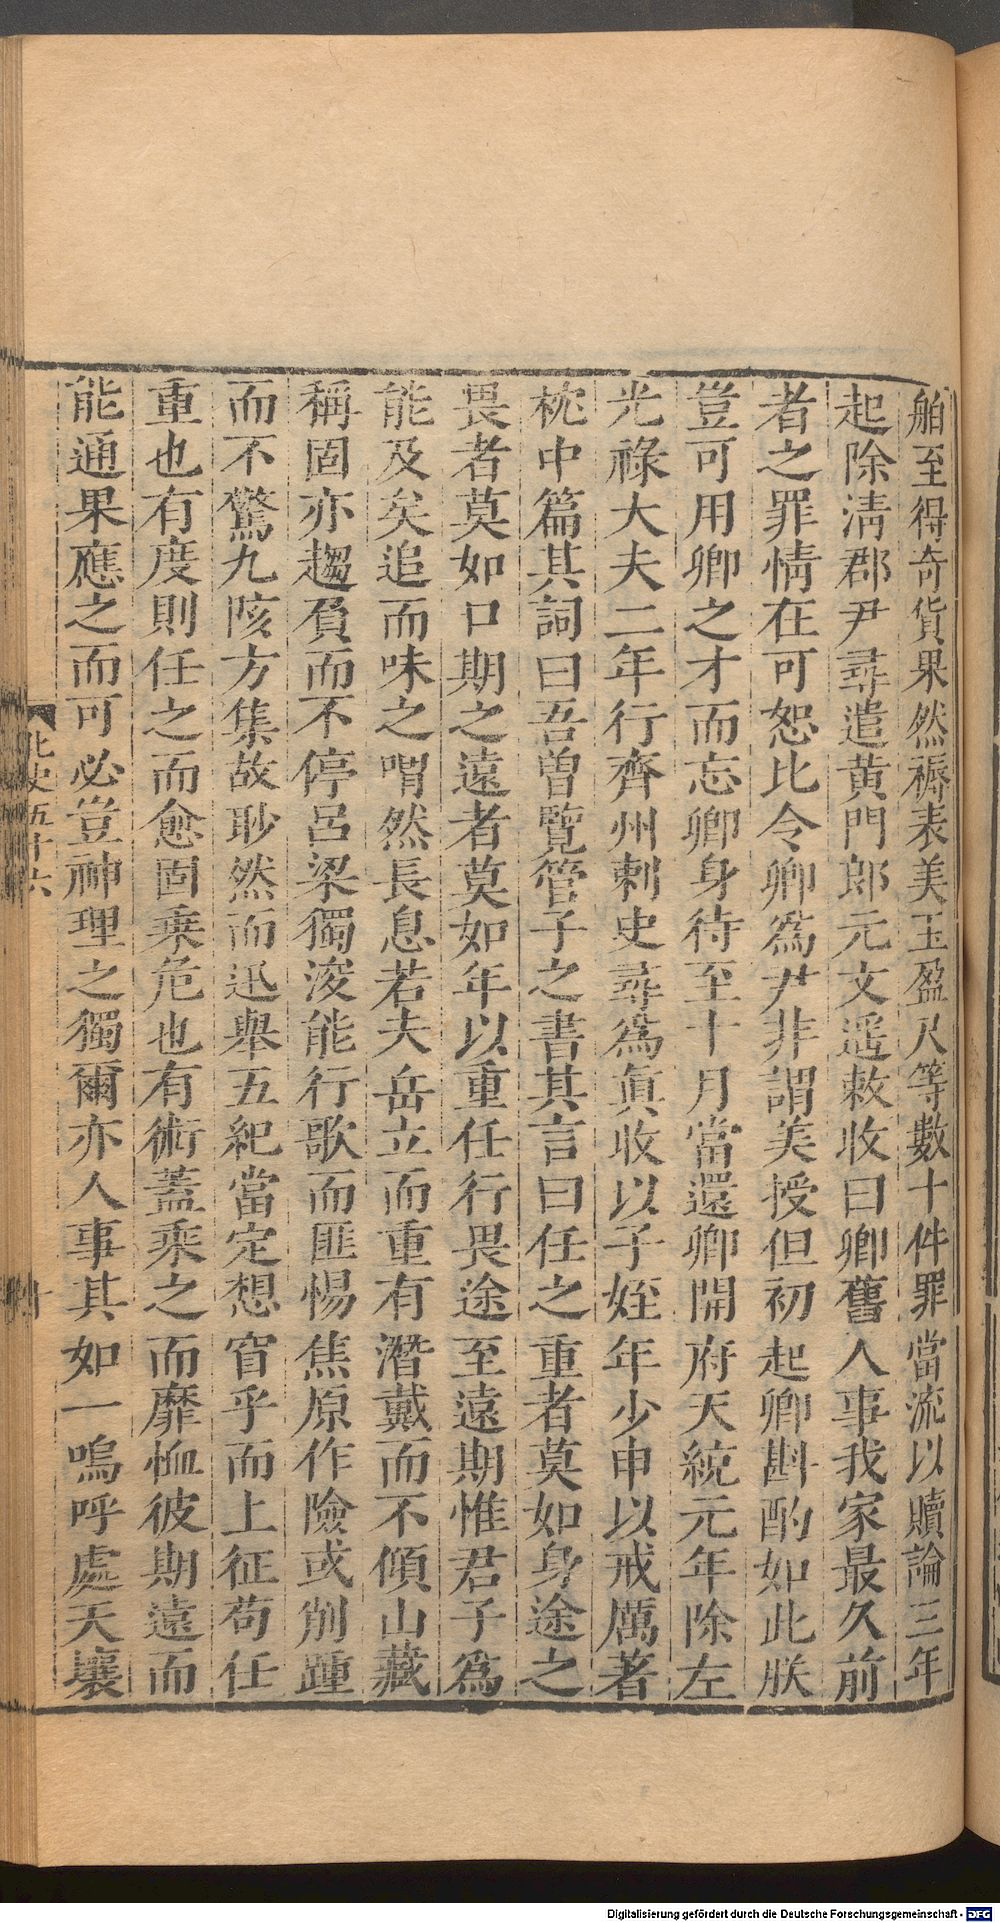 舶至得奇貨果然褥表美玉盈尺等數十件罪當流以贖論三年
起除清郡尹尋遣黃門郎元文遥敕收曰卿舊人事我家最久前
者之罪情在可恕比令卿爲尹非謂美授但初起卿斟酌如此朕
豈可用卿之才而忘卿身待至十月當還卿開府天統元年除左
光祿大夫二年行齊州刺史尋爲眞收以子姪年少申以戒厲著
枕中篇其詞曰吾曽覽管子之書其言曰任之重者莫如身途之
畏者莫如口期之遠者莫如年以重任行畏途至遠期惟君子爲
能及矣追而味之喟然長息若夫岳立而重有潛戴而不傾山藏
稱固亦趨負而不停呂梁獨浚能行歌而匪惕焦原作險或削踵
而不驚九陔方集故眇然而迅舉五紀當定想窅乎而上征苟任
重也有度則任之而愈固乗危也有術蓋乘之而靡恤彼期遠而
能通果應之而可必豈神理之獨爾亦人事其如一嗚呼處天壤
北史五十六
十
Digitalisierung gefördert durch die Deutsche Forschungsgemeinschaft - DFG